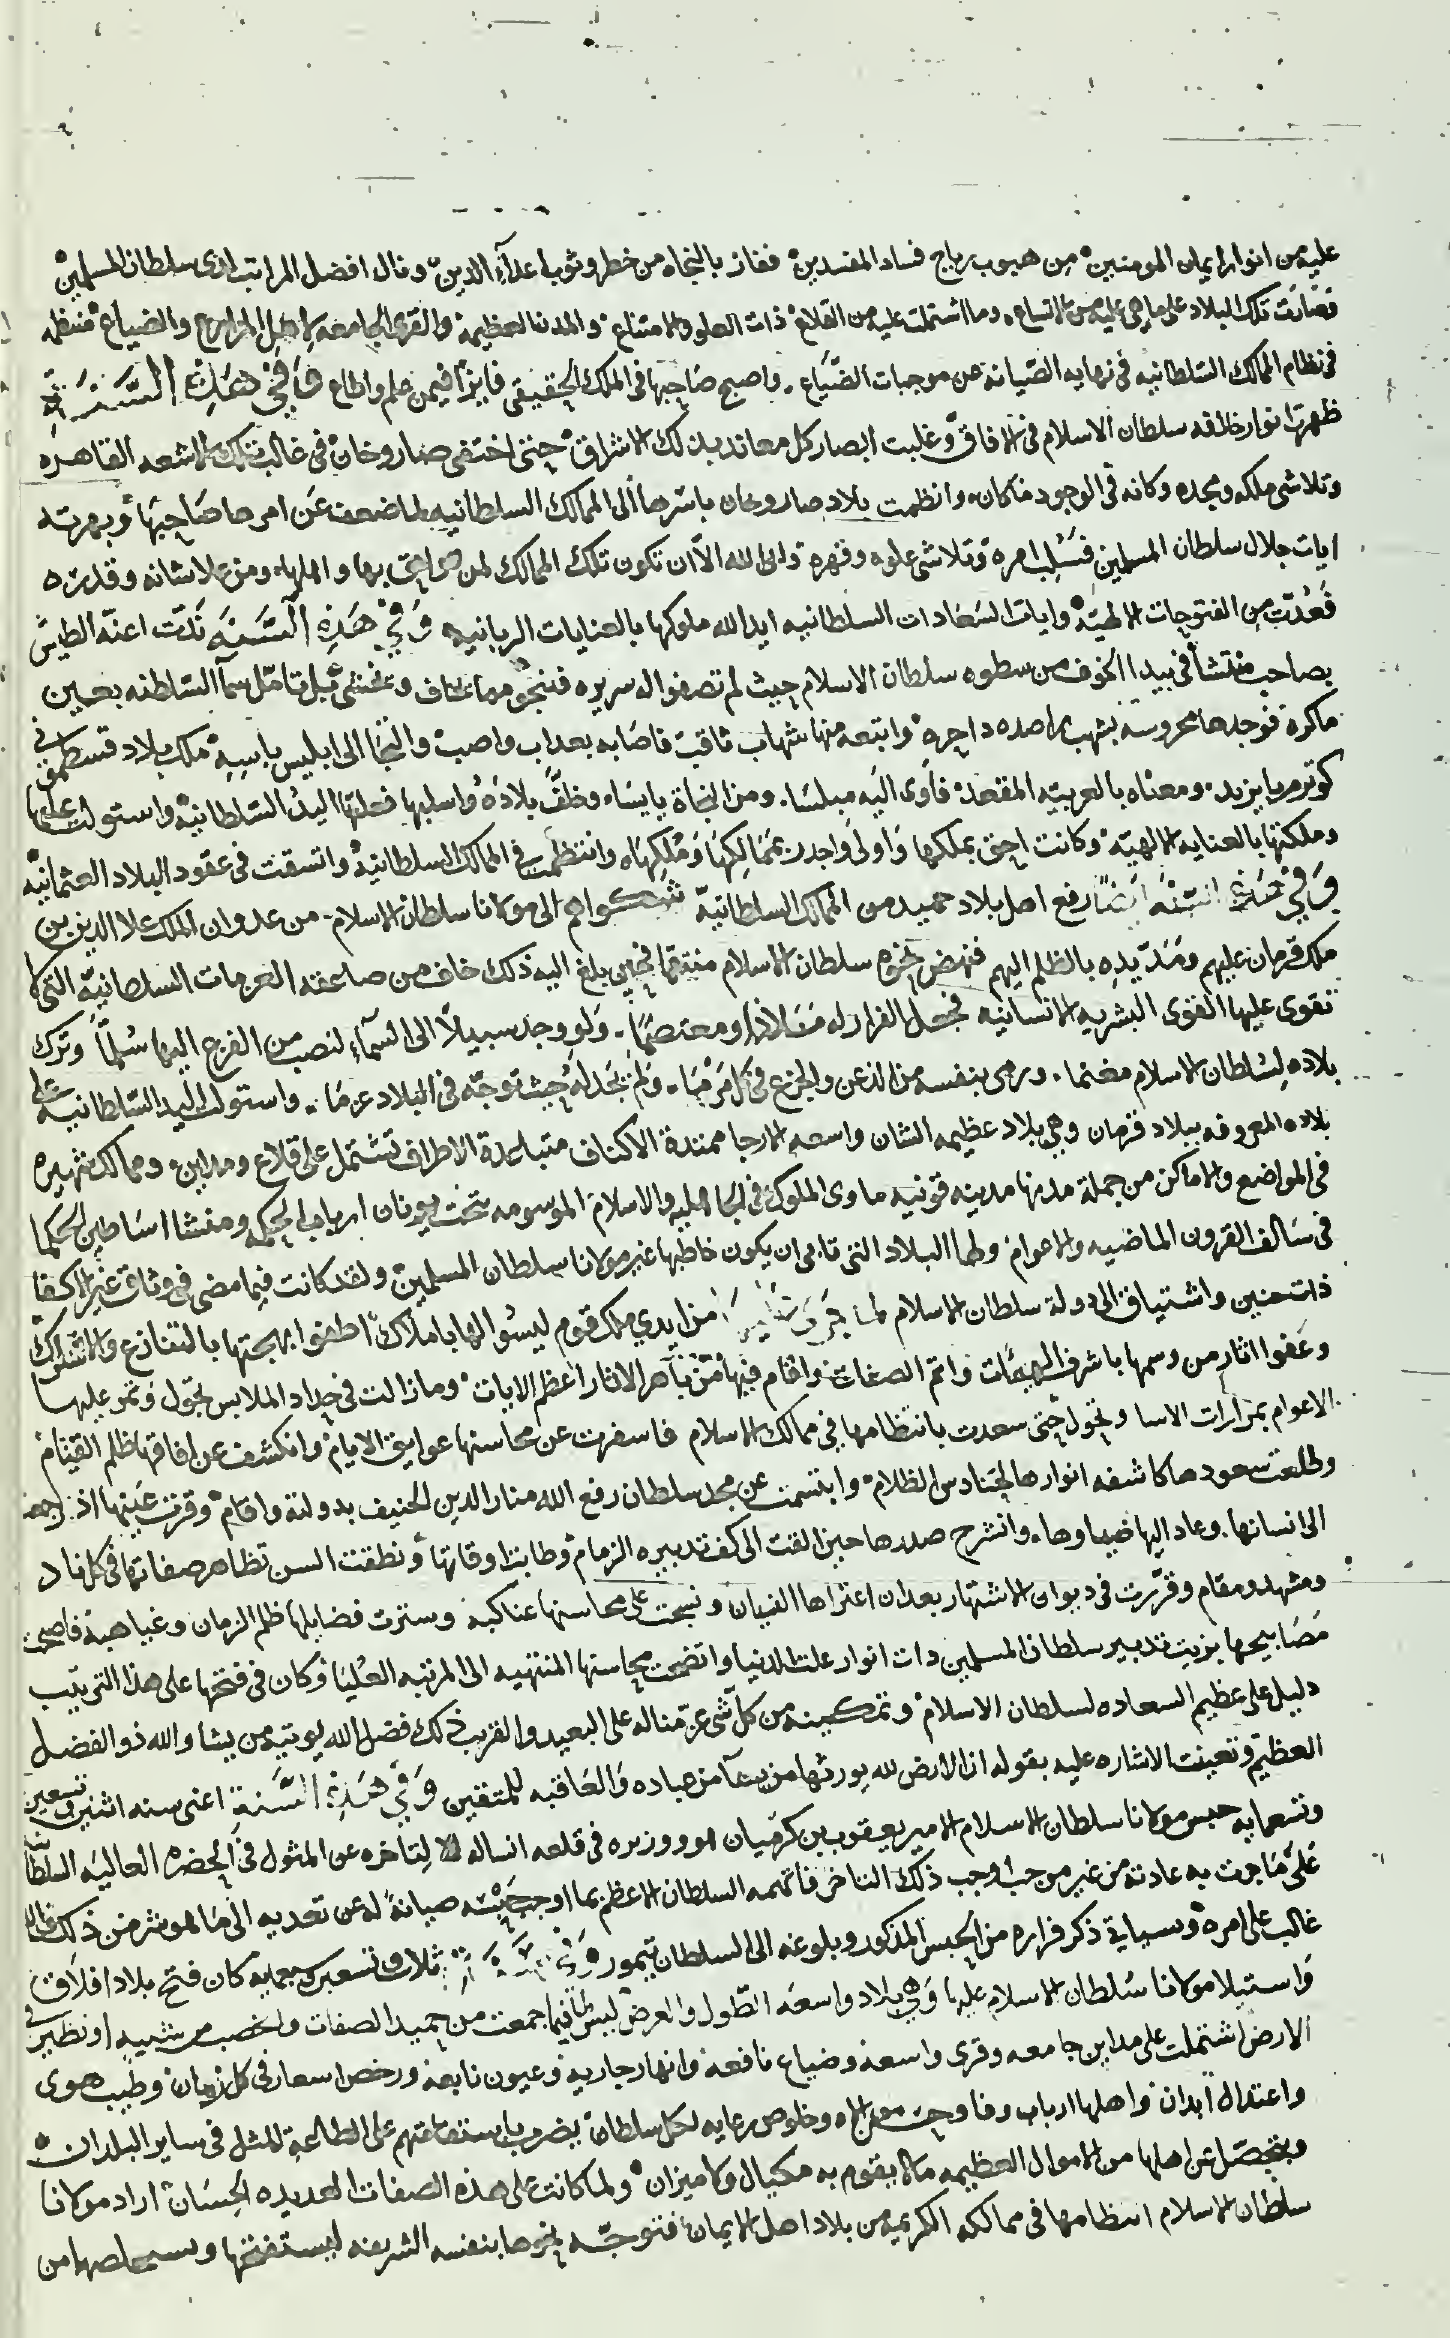 عليه من انوار ايمان المومنين من هبوب رياح فساد المفسدين ففاز بالنجاه من خطر وثوب اعداآء الدين ونال افضل المراتب لدى سلطان المسلمين
فصارت تلك البلاد على ما هي عليه من الاتساع وما اشتملت عليه من القلاع ذات العلو والامتناع والمدن العظيمة والقرى الجامعه لاهل المزارع والضياع منتظمه
في نظام الممالك السلطانيه في نهايه الصيانه عن موجبات الضياع واصبح صاحبها في الملك الحقيقي فايزا فيمن علم واطاع وفي هذه السنة
ظهرت انوار خلافه سلطان الاسلام في الافاق وغلبت ابصار كل معاند بذلك الاشراق حتى اختفى صاروخان في غالب تلك الاشعه القاهره
وتلاشى ملكه ومجده وكانه في الوجود ما كان وانظمت بلاد صاروخان باسرها الى الممالك السلطانيه لما ضعف عن امرها صاحبها وبهرته
ايات جلال سلطان المسلمين فسلب امره وتلاشى علوه وقهره وابى الله الا ان تكون تلك الممالك لمن هو احق بها واهلها ومن علا شانه وقدره
فعدت من الفتوحات الالهية وايات السعادات السلطانيه ايد الله ملوكها بالعنايات الربانيه وفي هذه السنه ندت اعنه الطيش
بصاحب منتشا في بيدا الخوف من سطوه سلطان الاسلام حيث لم تصفو اله سريره فنجو مما يخاف وغشى قبل تامل سمآ السلطنه بعين
ماكرة فوجدها محروسة بشهب راصده داحره واتبعه منها شهاب ثاقب فاصابه بعذاب واصب والتجا الى ابليس باسه ملك بلاد قسطموني
كوترم بايزيد ومعناه بالعربيه المقعد فاوى اليه مبلسا ومن النجاة يايسا وخلف بلاده واسلبها فعلتها اليد السلطانيه واستولت عليها
وملكتها بالعنايه الالهيه وكانت احق بملكها واولى واجدر بممالكها وملكها وانتظمت في الممالك السلطانية واتسقت في عقود البلاد العثمانيه
وفي هذه السنه ايضا رفع اهل بلاد حميد من الممالك السلطانية شكواهم الى مولانا سلطان الاسلام من عدوان الملك علا الدين بن
ملك قرمان عليهم ومد يده بالظلم اليهم فنهض نحوه سلطان الاسلام منتقما فحين بلغ اليه ذلك خاف من صاعقه العزمات السلطانيه التي لا
تقوى عليها القوى البشريه الانسانيه فجعل الفرار له ملاذا ومعتصما ولو وجد سبيلا الى السمآء لنصب من الفزع اليها سلما وترك
بلاده لسلطان الاسلام مغنما ورمى بنفسه من الذعر والجزع في كل مرمى ولم يجد له حيث توجه في البلاد عزما واستولت اليد السلطانيه على
بلاده المعروفه ببلاد قرمان وهي بلاد عظيمه الشان واسعه الارجا ممتدة الاكناف متباعدة الاطراف تشتمل على قلاع ومداين وممالك شهيره
في المواضع والاماكن من جملة مدنها مدينه قونيه ماوى الملوك في الجاهليه والاسلام الموسومه بتخت يونان ارباب الحكمه ومنشا اساطين الحكما
في سالف القرون الماضيه والاعوام وطما البلاد التي تابى ان يكون خاطبها غير مولانا سلطان المسلمين ولقد كانت فيما مضى في وثاق غير الاكفا
ذات حنين واشتياق الى دولة سلطان الاسلام لما من ايدي ملك قوم ليسوا لها باملاك اطفوا بهجتها بالتنازع والاشتراك
وعفوا اثار من وسمها باشرف الهيئات واتم الصفات واقام فيها من باهر الاثار اعظم الايات وما زالت في حداد الملابس تجول وتمر عليها
الاعوام بمرارات الاسا وتحول حتى سعدت بانتظامها في ممالك الاسلام فاسفرت عن محاسنها عوابق الايام وانكشف عن افاقها ظلم القتام
وطلعت سعودها كاشفه انوارها لحنادس الظلام وابتسمت عن مجد سلطان رفع الله منار الدين الحنيف بدولته واقام وقرت عينها اذ رجعت
الى انسانها وعاد اليها ضياوها وانشرح صدرها حين القت الى كف تدبيره الزمام وطابت اوقاتها ونطقت السن تظاهر صفاتها في كل ناد
ومشهد ومقام وقررت في ديوان الاشتهار بعد ان اعتراها النسيان ونسجت على محاسنها عناكبه وسترت فضايلها ظلم الزمان وغياهبه فاصبحت
مصابيحها بزيت تدبير سلطان المسلمين ذات انوار علت الدنيا واتضحت محاسنها المنتهيه الى المرتبه العليا وكان في فتحها على هذا الترتيب
دليل على عظيم السعاده لسلطان الاسلام وتمكينه من كل شى عز مناله على البعيد والقريب ذلك فضل الله يوتيه من يشا والله ذو الفضل
العظيم وتعينت الاشاره عليه بقوله ان الارض لله يورثها من يشآ من عباده والعاقبه للمتقين وفي هذه السنة اعني سنه اثنين وتسعين
وتسعمايه حبس مولانا سلطان الاسلام الامير يعقوب بن كرميان هو ووزيره في قلعه انساله لتاخره عن المثول في الحضره العاليه السلطانية
على ما جرت به عادته من غير موجب اوجب ذلك التاخر فاتهمه السلطان الاعظم بما اوجب حبسه صيانة له عن تعديه الى ما هو شر من ذلك والله
غالب على امره وسياتي ذكر فراره من الحبس المذكور وبلوغه الى السلطان تيمور وفي سنة ثلاث وتسعين وسبعمايه كان فتح بلاد افلاق
واستيلا مولانا سلطان الاسلام عليها وهي بلاد واسعه الطول والعرض ليس لها فيما جمعت من حميد الصفات والخصب من شبيه او نظير في
الارض اشتملت على مداين جامعه وقرى واسعه وضياع نافعه وانهار جاريه وعيون نابعه ورخص اسعار في كل زمان وطيب هوى
واعتدال ابدان واهلها ارباب وفا وحسن معامله وخلوص رعايه لكل سلطان يضرب باستقامتهم على الطاعة المثل في ساير البلدان
ويتحصل عن اهلها من الاموال العظيمه ما لا يقوم به مكيال ولا ميزان ولما كانت على هذه الصفات العديده الحسان اراد مولانا
سلطان الاسلام انتظامها في ممالكه الكريمه من بلاد اهل الايمان فتوجه نحوها بنفسه الشريفه ليستفتحها ويستخلصها من